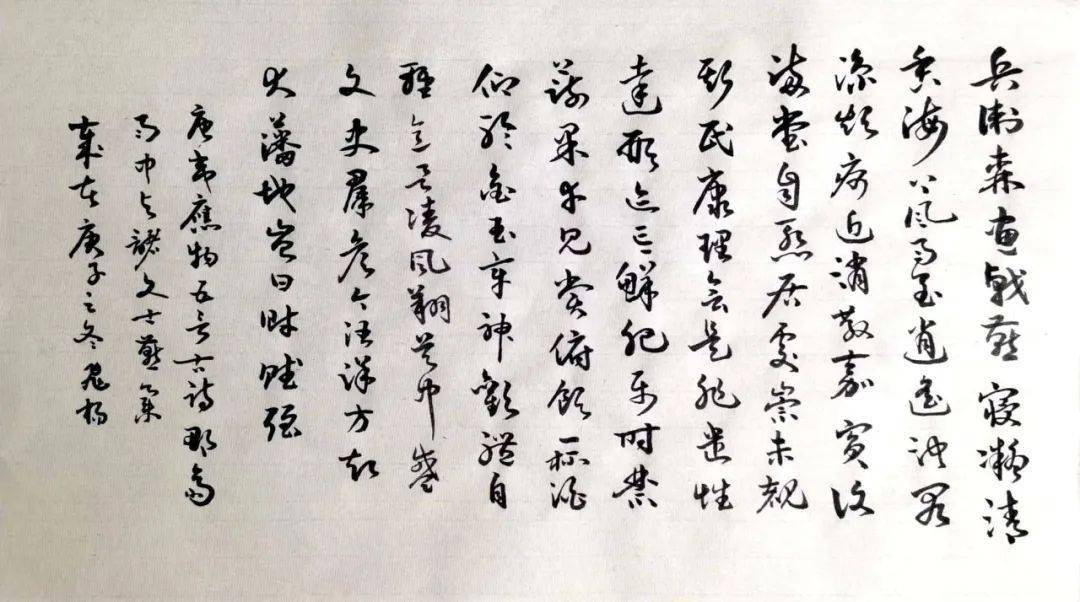 兵衛森画戟燕寢凝清
香海上風雨至逍遥池閣
凉烦疴近消散嘉賓復
滿堂自慙居處崇未覩
斯民康理會是非遣性
達形迹忘鮮肥属时禁
蔬果幸見嘗俯飲一杯酒
仰聆金玉章神歡體自
輕意欲凌風翔吴中盛
文史羣彦今汪洋方知
大藩地豈曰財賦强
唐韋應物五言古詩郡斋
雨中与諸文士燕集
歲在庚子之冬